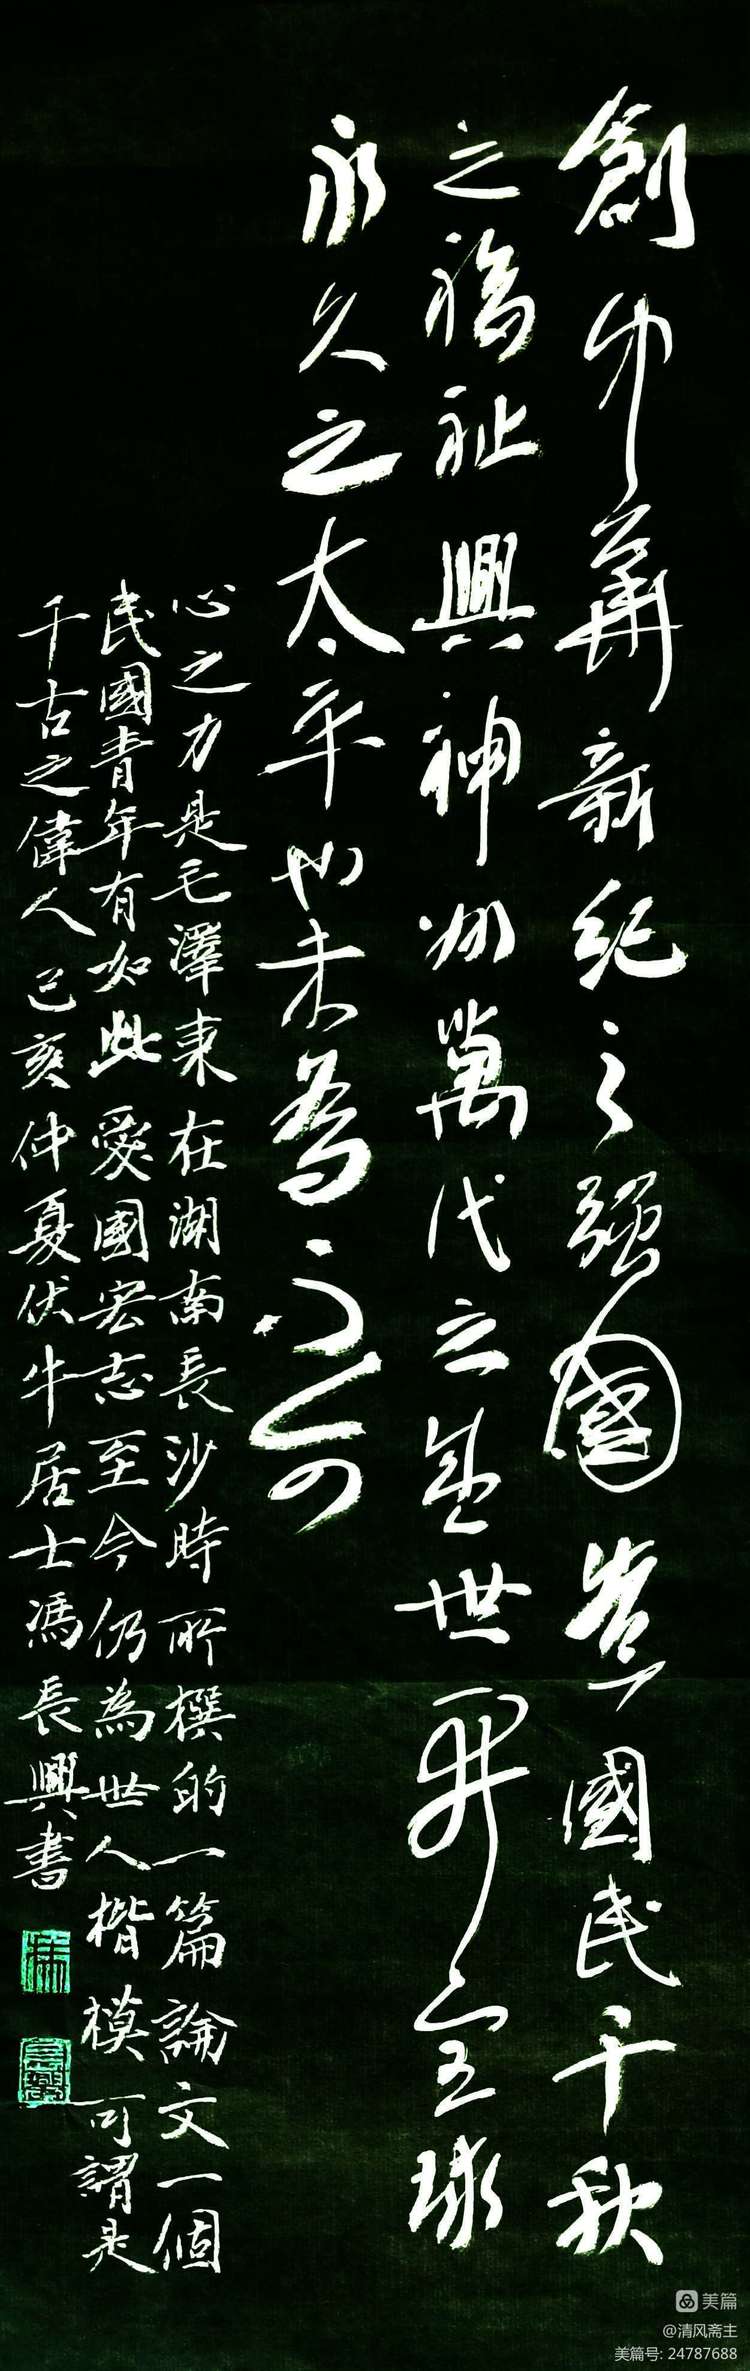 創中華新紀之强國造國民千秋
之福祉興神州萬代之盛世開全球
永久之太平也未為不可
心之力是毛澤東在湖南長沙時所撰的一篇論文一個
民國青年有如此愛國宏志至今仍為世人楷模可謂是
千古之偉人己亥仲夏伏牛居士馮長興書
美篇
@清风斋主
美篇号: 24787688